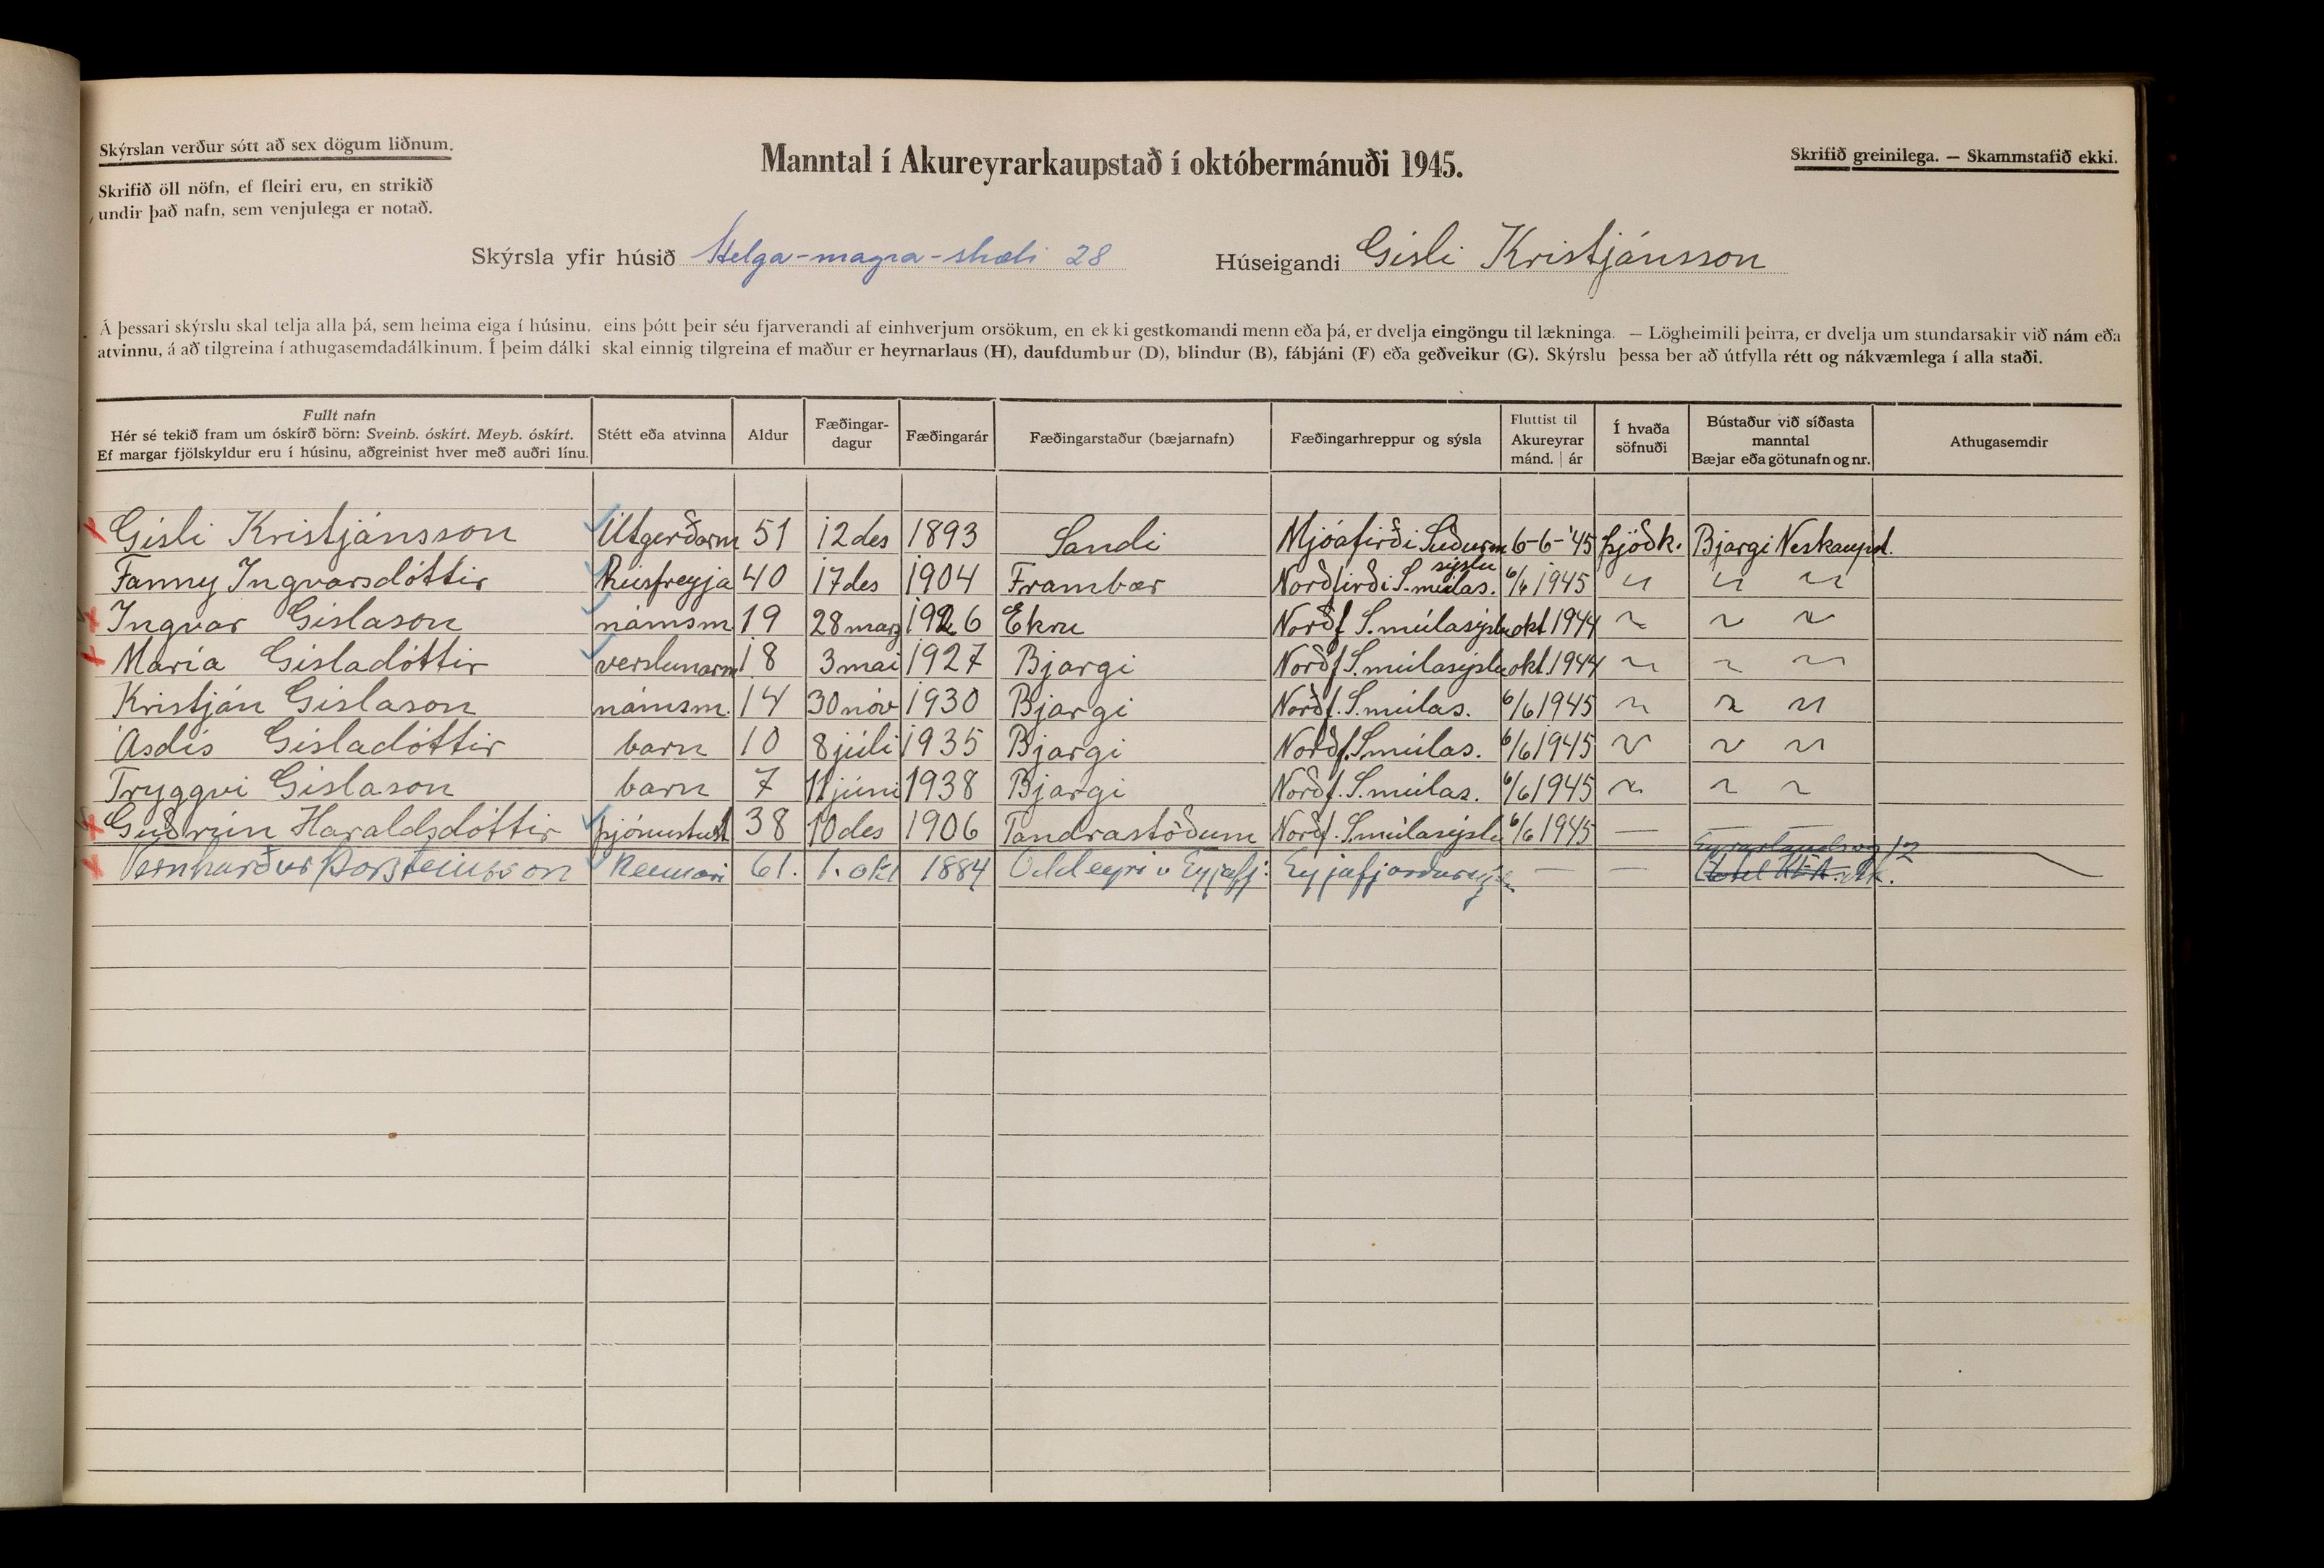 Skýrslan verður sótt að sex dögum liðnum.
Manntal í Akureyrarkaupstað í októbermánuði 1945.
Skrifið greinilega. — Skammstafið ekki.
Skrifið öll nöfn, ef fleiri eru, en strikið
undir það nafn, sem venjulega er notað.
Skýrsla yfir húsið Helga-magra-stræti 28 Húseigandi Gísli Kristjánsson
Á þessari skýrslu skal telja alla þá, sem heima eiga í húsinu, eins þótt þeir séu fjarverandi af einhverjum orsökum, en ekki gestkomandi menn eða þá, er dvelja eingöngu til lækninga. — Lögheimili þeirra, er dvelja um stundarsakir við nám eða
atvinnu, á að tilgreina í athugasemdadálkinum. Í þeim dálki skal einnig tilgreina ef maður er heyrnarlaus (H), daufdumbur (D), blindur (B), fábjáni (F) eða geðveikur (G). Skýrslu þessa ber að útfylla rétt og nákvæmlega í alla staði.
Fullt nafn
Hér sé tekið fram um óskírð börn: Sveinb. óskírt. Meyb. óskírt.
Ef margar fjölskyldur eru í húsinu, aðgreinist hver með auðri línu.
Stétt eða atvinna
Aldur
Fæðingar-
dagur
Fæðingarár
Fæðingarstaður (bæjarnafn)
Fæðingarhreppur og sýsla
Fluttist til
Akureyrar
mánd. | ár
Í hvaða
söfnuði
Bústaður við síðasta
manntal
Bæjar eða götunafn og nr.
Athugasemdir
Gísli Kristjánsson Útgerðarm 51 12 des 1893 Sandi Mjóafirði Suðurm sýslu 6-6-'45 þjóðk. Bjargi Neskaupst.
Fanny Ingvarsdóttir húsfreyja 40 17 des 1904 Frambær Norðfirði S.múlas. 6/6 1945 〃 〃 〃
Ingvar Gíslason námsm 19 28 marz 1926 Ekru Norðf S.múlasýslu okt 1944 〃 〃 〃
María Gísladóttir verslunarm 18 3 maí 1927 Bjargi Norðf S.múlasýslu okt. 1944 〃 〃 〃
Kristján Gíslason námsm. 14 30 nóv 1930 Bjargi Norðf. S.múlas. 6/6 1945 〃 〃 〃
Ásdís Gísladóttir barn 10 8 júlí 1935 Bjargi Norðf. S.múlas. 6/6 1945 〃 〃 〃
Tryggvi Gíslason barn 7 11 júní 1938 Bjargi Norðf. S.múlas. 6/6 1945 〃 〃 〃
Guðrún Haraldsdóttir þjónustust 38 10 des 1906 Tandrastöðum Norðf. S.múlasýslu 6/6 1945 — — —
Eyrarlandsveg 12
Vernharður Þorsteinsson Kennari 61. 1. okt 1884 Oddeyri v Eyjafj: Eyjafjarðarsýslu — — Hotel KEA. Ak.